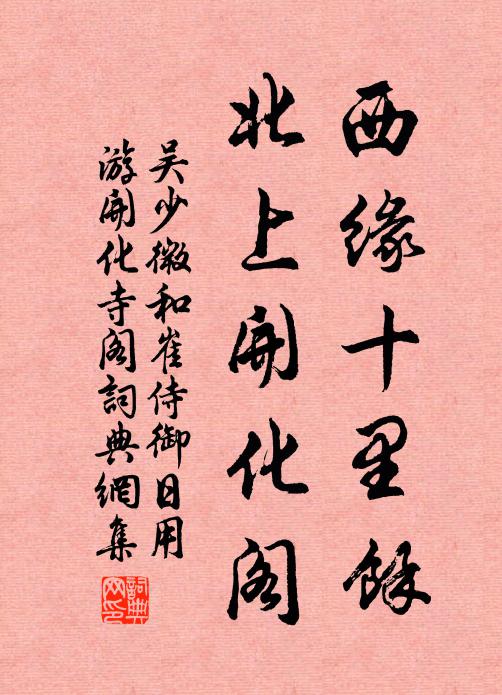 西緣十里餘
北上開化閣
吴少微和崔侍御日用
游開化寺閣詞典網集
詞典網印